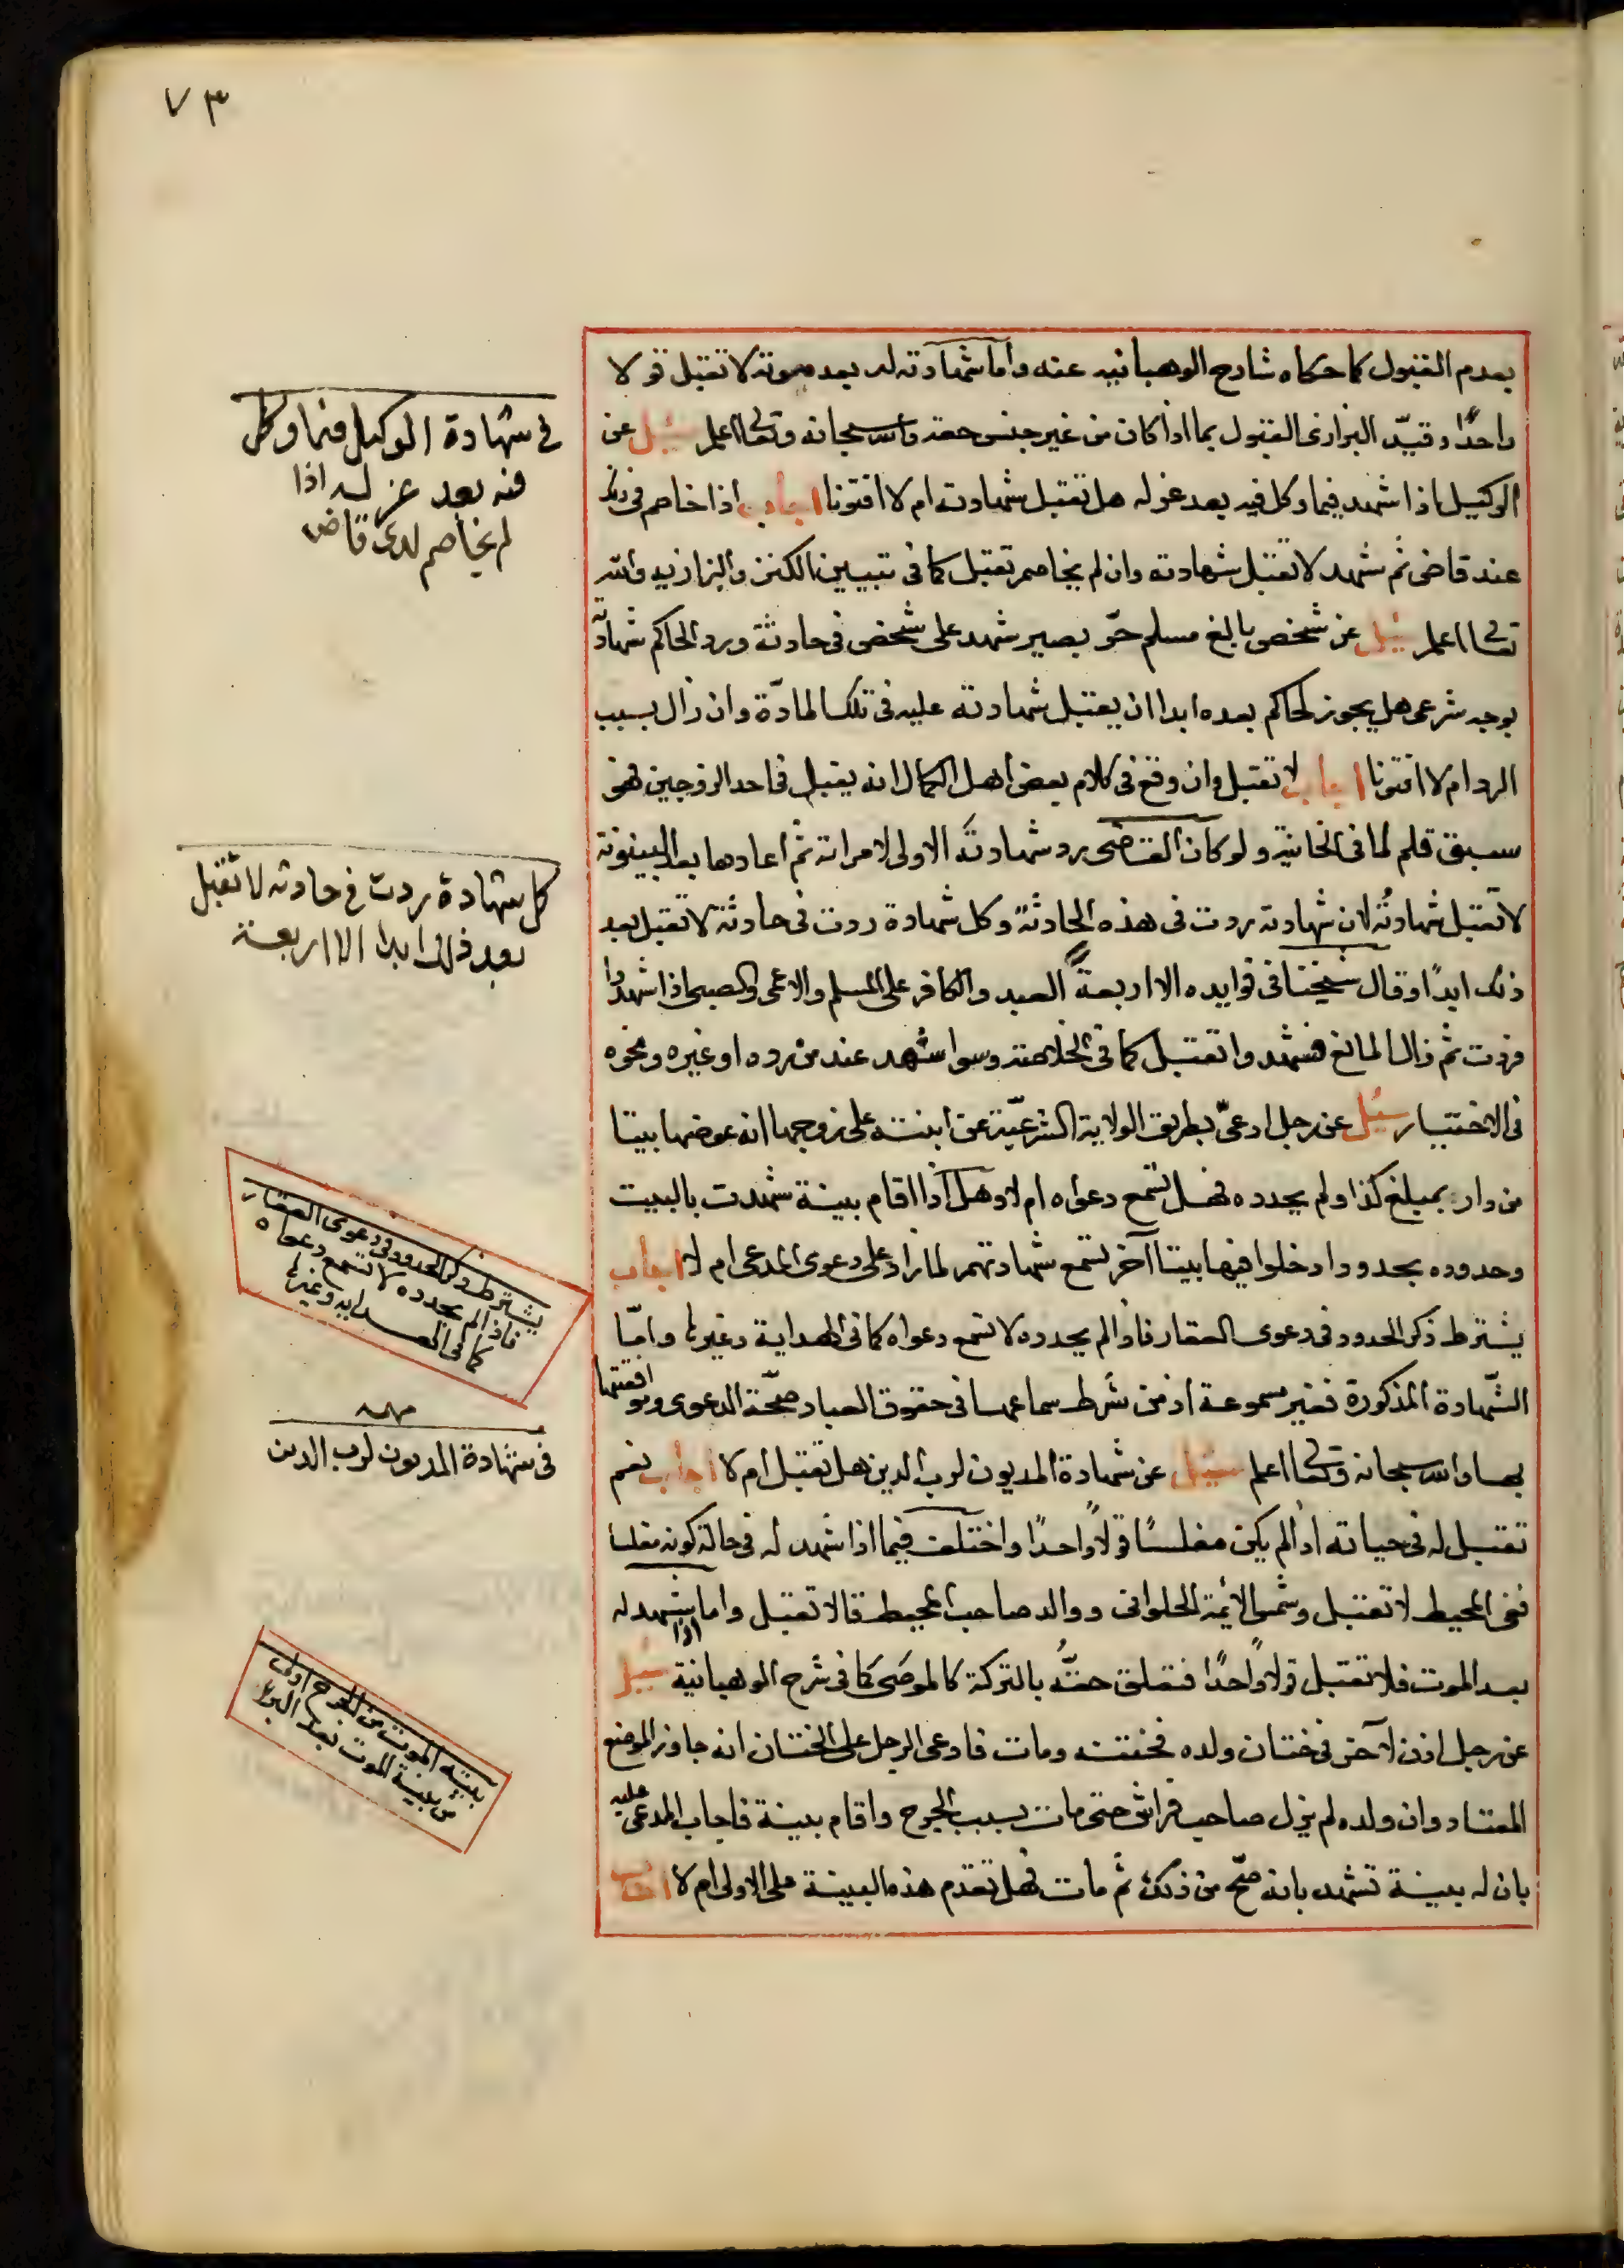 ٧٣
بعدم القبول كما حكاه شارح الوهبانية عنه واما شهادته له بعد موته لا تقبل قولا
واحدًا وقيّد البزازى القبول بما اذا كان من غير جنس حقه والله سبحانه وتعالى اعلم سئل عن
الوكيل اذا شهد فيما وكل فيه بعد عزله هل تقبل شهادته ام لا افتونا اجاب اذا خاصم فى ذلك
عند قاضى ثم شهد لا تقبل شهادته وان لم يخاصم تقبل كما فى تبيين الكنز والبزازيه والله
تعالى اعلم سئل عن شخص بالغ مسلم حرّ بصير شهد على شخص فى حادثة ورد الحاكم شهادته
بوجه شرعى هل يجوز لحاكم بعده ابدا ان يقبل شهادته عليه فى تلك المادّة وان زال سبب
الرد ام لا افتونا اجاب لا تقبل وان وقع فى كلام بعض اهل الكمال انه يقبل فى احد الزوجين فهو
سبق قلم لما فى الخانية ولو كان القاضى رد شهادته الاولى لامراته ثم اعادها بعد البينونة
لا تقبل شهادته لان شهادته ردت فى هذه الحادثة وكل شهادة ردت فى حادثة لا تقبل بعد
ذلك ابدًا وقال شيخنا فى فوايده الا اربعة العبد والكافر على المسلم والاعمى والصبى اذا شهدوا
فردت ثم زال المانع فشهدوا تقبل كما فى الخلاصة وسوا شهد عند من رده او غيره ونحوه
فى الاختيار سئل عن رجل ادعىّ بطريق الولاية الشرعيّة عن ابنته على زوجها انه عوضها بيتا
من دار بمبلغ كذا ولم يحدده فهل تسمع دعواه ام لا وهل اذا اقام بينة شهدت بالبيت
وحدوده بحدود وادخلوا فيها بيتا آخر تسمع شهادتهم لما زاد على دعوى المدعى ام لا اجاب
يشترط ذكر الحدود فى دعوى العقار فاذا لم يحدده لا تسمع دعواه كما فى الهداية وغيرها وامّا
الشّهادة المذكورة فغير مسموعة اذ من شرط سماعها فى حقوق العباد صحّة الدعوى وموافقتها
لها والله سبحانه وتعالى اعلم سئل عن شهادة المديون لرب الدين هل تقبل ام لا اجاب نعم
تقبل له فى حياته اذا لم يكن مفلسًا قولاً واحدًا واختلف فيما اذا شهد له فى حالة كونه مفلسا
ففى المحيط لا تقبل وشمس الائمة الحلوانى ووالد صاحب المحيط قالا تقبل واما اذا شهد له
بعد الموت فلا تقبل قولاً واحدًا فتعلق حقّه بالتركة كالموصى كما فى شرح الوهبانية سئل
عن رجل اذن لآخر فى ختان ولده فختنته ومات فادعى الرجل على الختان انه جاوز الموضع
المعتاد وان ولده لم يزل صاحب فراش حتى مات بسبب الجرح واقام بينة فاجاب المدعى عليه
بان له بينة تشهد بانه صحّ من ذلك ثم مات فهل تقدم هذه البينة على الاولى ام لا اجاب
فى شهادة الوكيل فيما وكل
فيه بعد عزله اذا
لم يخاصم لدى قاض
كل شهادة ردت فى حادثه لا تقبل
بعد ذلك ابدا الا اربعة
يشترط ذكر الحدود فى دعوى العقار
فاذا لم يحدده لا تسمع دعواه
كما فى الهدايه وغيرها
فى شهادة المديون لرب الدين
بينة الموت من الجرح اولى
من بينة الموت بعد البرء